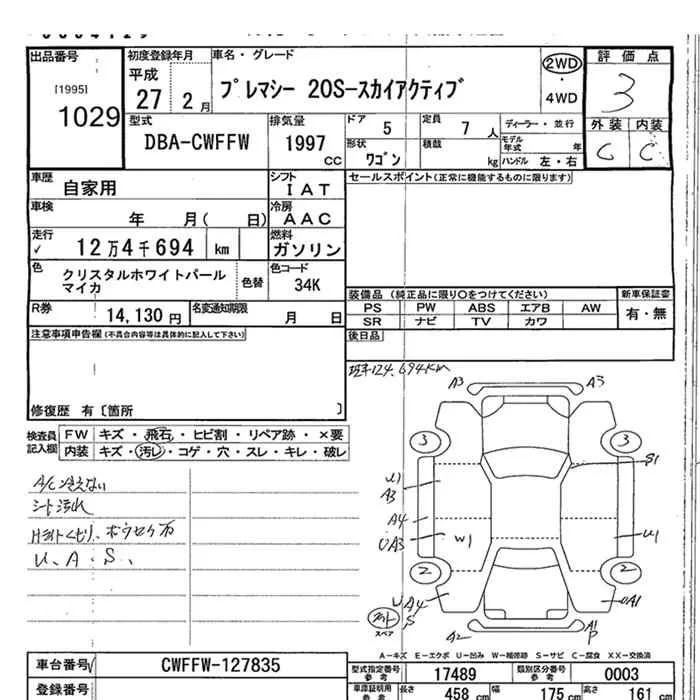 出品番号 初度登録年月 車名・グレード 評価点
[1995] 1029
平成 27 2月 プレマシー 20S-スカイアクティブ 2WD・4WD 3
型式 排気量 ドア 5 定員 7人 ディーラー・並行 外装 内装
DBA-CWFFW 1997 CC 形状 ワゴン 積載 kg モデル年式 年 ハンドル 左・右 C C
車歴 自家用 シフト IAT セールスポイント(正常に機能するものに限ります)
車検 年 月( 日) 冷房 AAC
走行 ✓ 12万4千694 km 燃料 ガソリン
色 クリスタルホワイトパールマイカ 色替 色コード 34K
装備品 (純正品に限り○をつけてください) 新車保証書
R券 14,130円 名変通知期限 月 日 PS PW ABS エアB AW 有・無
SR ナビ TV カワ
注意事項申告欄(不具合内容等は具体的に記入して下さい) 後日品
124,694km
修復歴 有〔箇所 〕
検査員記入欄 FW キズ・飛石・ヒビ割・リペア跡・×要
内装 キズ・汚レ・コゲ・穴・スレ・キレ・破レ
A3 A3
3 3
A/C冷えない U1 A3 S1
シート汚れ A4
Hライトくもり、 UA3 W1 U1
U、A、S、
2 2
UA4 S UA1
スペア A2 A1 P
A-キズ E-エクボ U-凹み W-補修跡 S-サビ C-腐食 XX-交換済
車台番号 CWFFW-127835 型式指定番号 参考 17489 類別区分番号 参考 0003
登録番号 車庫証明用 参考 長さ 458 cm 幅 175 cm 高さ 161 cm